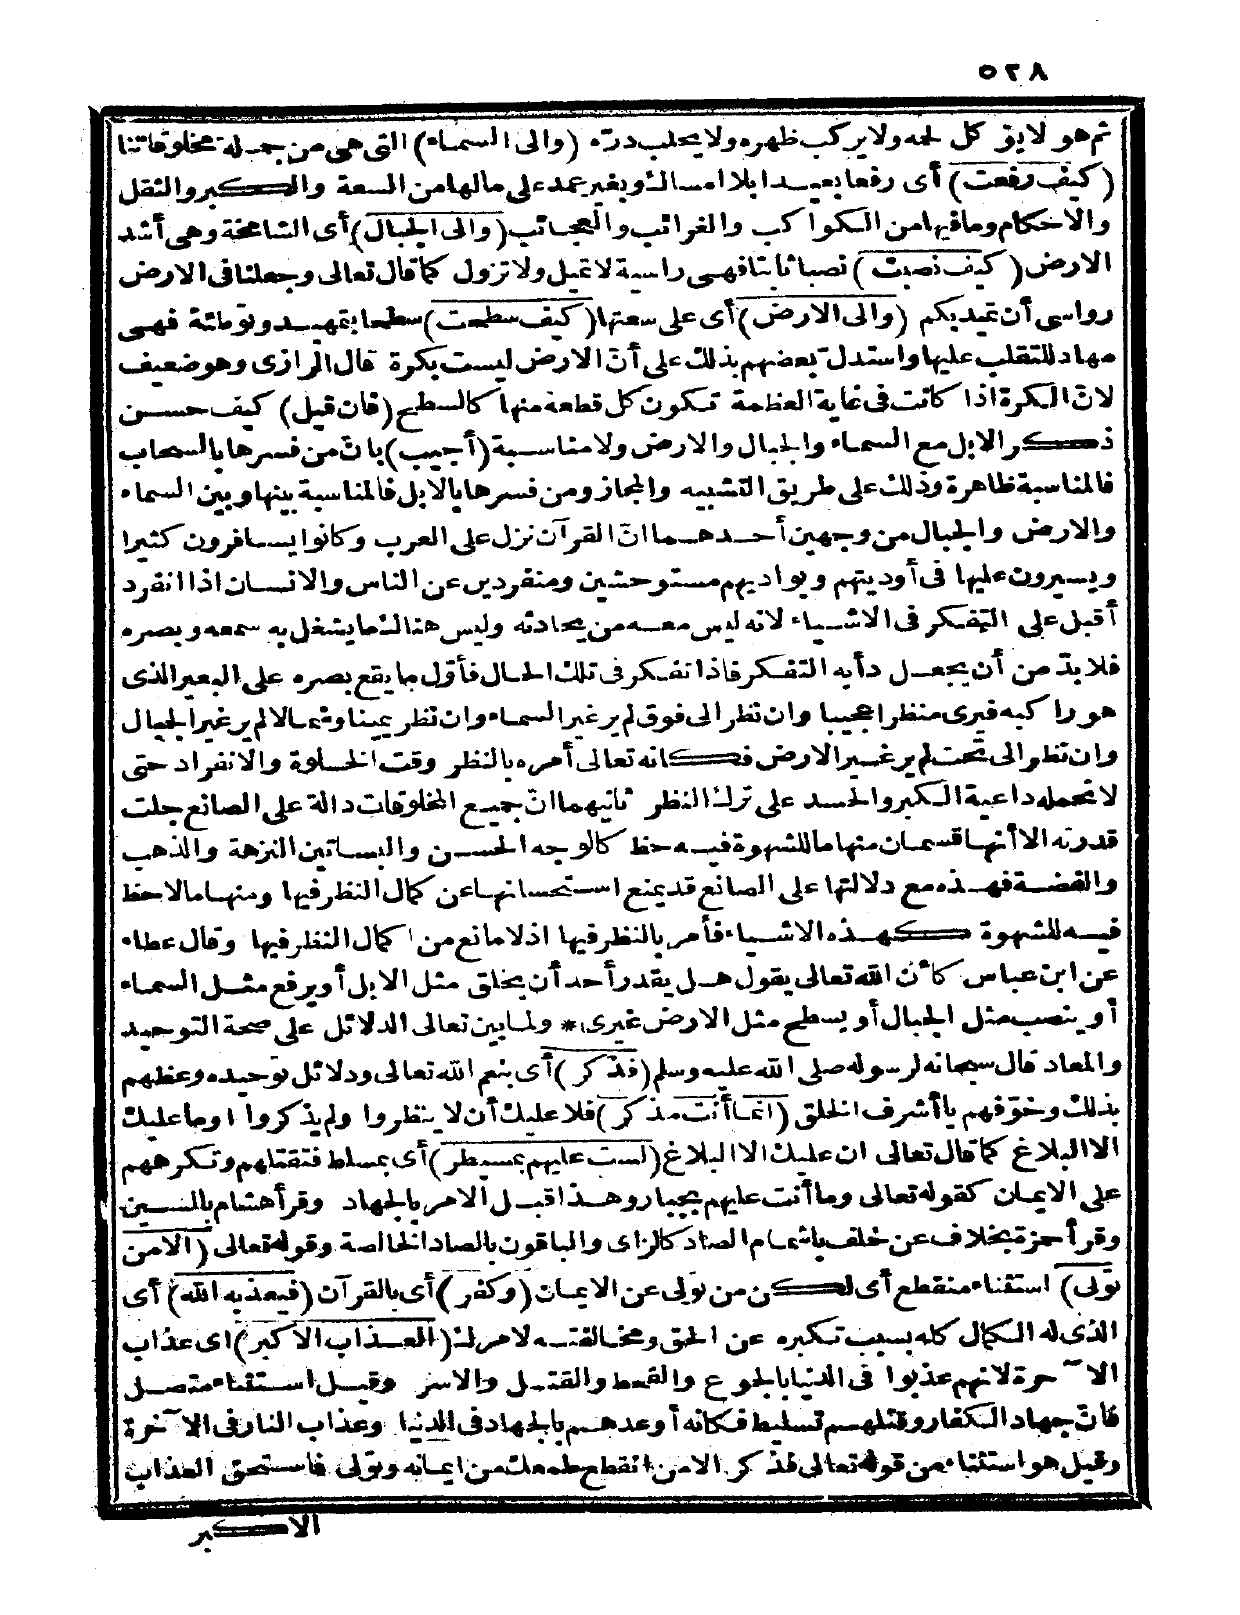 ٥٢٨
ثم هو لا يؤكل لحمه ولا يركب ظهره ولا يحلب درّه (والى السماء) التى هى من جملة مخلوقاتنا
(كيف رفعت) أى رفعا بعيدا بلا امساك وبغير عمد على مالها من السعة والكبر والثقل
والاحكام وما فيها من الكواكب والغرائب والعجائب (والى الجبال) أى الشامخة وهى أشد
الارض (كيف نصبت) نصبا ثابتا فهى راسية لا تميل ولا تزول كما قال تعالى وجعلنا فى الارض
رواسى أن تميد بكم (والى الارض) أى على سعتها (كيف سطحت) سطحا بتمهيد وتوطئة فهى
مهاد للتقلب عليها واستدل بعضهم بذلك على أنّ الارض ليست بكرة قال الرازى وهو ضعيف
لانّ الكرة اذا كانت فى غاية العظمة تكون كل قطعة منها كالسطح (فان قيل) كيف حسن
ذكر الابل مع السماء والجبال والارض ولا مناسبة (أجيب) بانّ من فسرها بالسحاب
فالمناسبة ظاهرة وذلك على طريق التشبيه والمجاز ومن فسرها بالابل فالمناسبة بينها وبين السماء
والارض والجبال من وجهين أحدهما انّ القرآن نزل على العرب وكانوا يسافرون كثيرا
ويسيرون عليها فى أوديتهم وبواديهم مستوحشين ومنفردين عن الناس والانسان اذا انفرد
أقبل على التفكر فى الاشياء لانه ليس معه من يحادثه وليس هناك ما يشغل به سمعه وبصره
فلا بدّ من أن يجعل دأبه التفكر فاذا تفكر فى تلك الحال فأوّل ما يقع بصره على البعير الذى
هو راكبه فيرى منظرا عجيبا وان نظر الى فوق لم ير غير السماء وان نظر يمينا وشمالا لم ير غير الجبال
وان نظر الى تحت لم ير غير الارض فكانه تعالى أمره بالنظر وقت الخلوة والانفراد حتى
لا تحمله داعية الكبر والحسد على ترك النظر ثانيهما انّ جميع المخلوقات دالة على الصانع جلت
قدرته الا أنها قسمان منها ما للشهوة فيه حظ كالوجه الحسن والبساتين النزهة والذهب
والفضة فهذه مع دلالتها على الصانع قد يمنع استحسانها عن كمال النظر فيها ومنها ما لا حظ
فيه للشهوة كهذه الاشياء فأمر بالنظر فيها اذ لا مانع من اكمال النظر فيها وقال عطاء
عن ابن عباس كأنّ الله تعالى يقول هل يقدر أحد أن يخلق مثل الابل أو يرفع مثل السماء
أو ينصب مثل الجبال أو يسطح مثل الارض غيرى* ولما بين تعالى الدلائل على صحة التوحيد
والمعاد قال سبحانه لرسوله صلى الله عليه وسلم (فذكر) أى بنعم الله تعالى ودلائل توحيده وعظهم
بذلك وخوّفهم يا أشرف الخلق (انما أنت مذكر) فلا عليك أن لا ينظروا ولم يذكروا اوما عليك
الا البلاغ كما قال تعالى ان عليك الا البلاغ (لست عليهم بمسيطر) أى بمسلط فتقتلهم وتكرههم
على الايمان كقوله تعالى وما أنت عليهم بجبار وهذا قبل الامر بالجهاد وقرأ هشام بالسين
وقرأ حمزة بخلاف عن خلف باشمام الصاد كالزاى والباقون بالصاد الخالصة وقوله تعالى (الا من
تولى) استثناء منقطع أى لكن من تولى عن الايمان (وكفر) أى بالقرآن (فيعذبه الله) أى
الذى له الكمال كله بسبب تكبره عن الحق ومخالفته لامرك (العذاب الاكبر) اى عذاب
الآخرة لانهم عذبوا فى الدنيا بالجوع والقحط والقتل والاسر وقيل استثناء متصل
فانّ جهاد الكفار وقتلهم تسليط فكانه أوعدهم بالجهاد فى الدنيا وعذاب النار فى الآخرة
وقيل هو استثناء من قوله تعالى فذكر الا من انقطع طمعك من ايمانه وتولى فاستحق العذاب
الاكبر